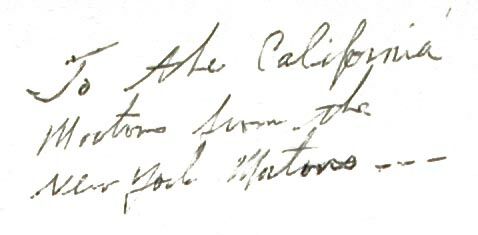 To the California
Mortons from the
New York Mortons ---